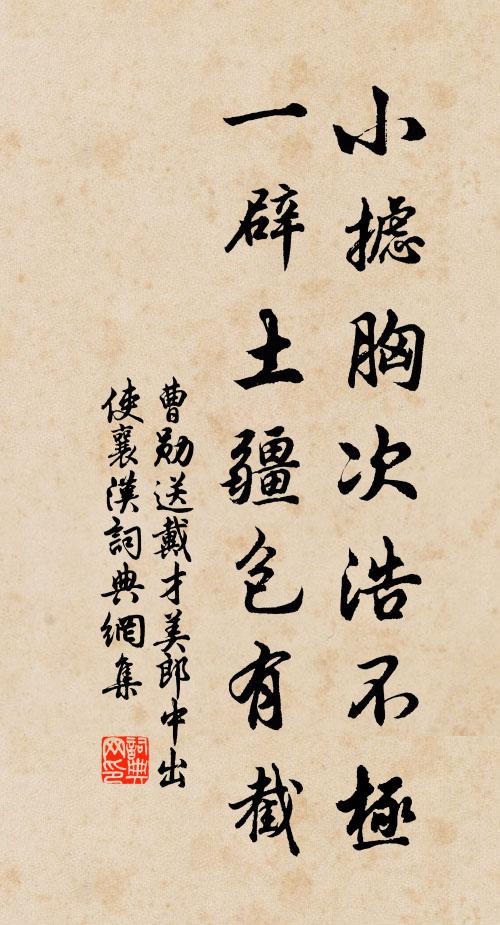 小摅胸次浩不極
一辟土疆包有截
曹勛送戴才美郎中出
使襄漢詞典網集
詞典网印